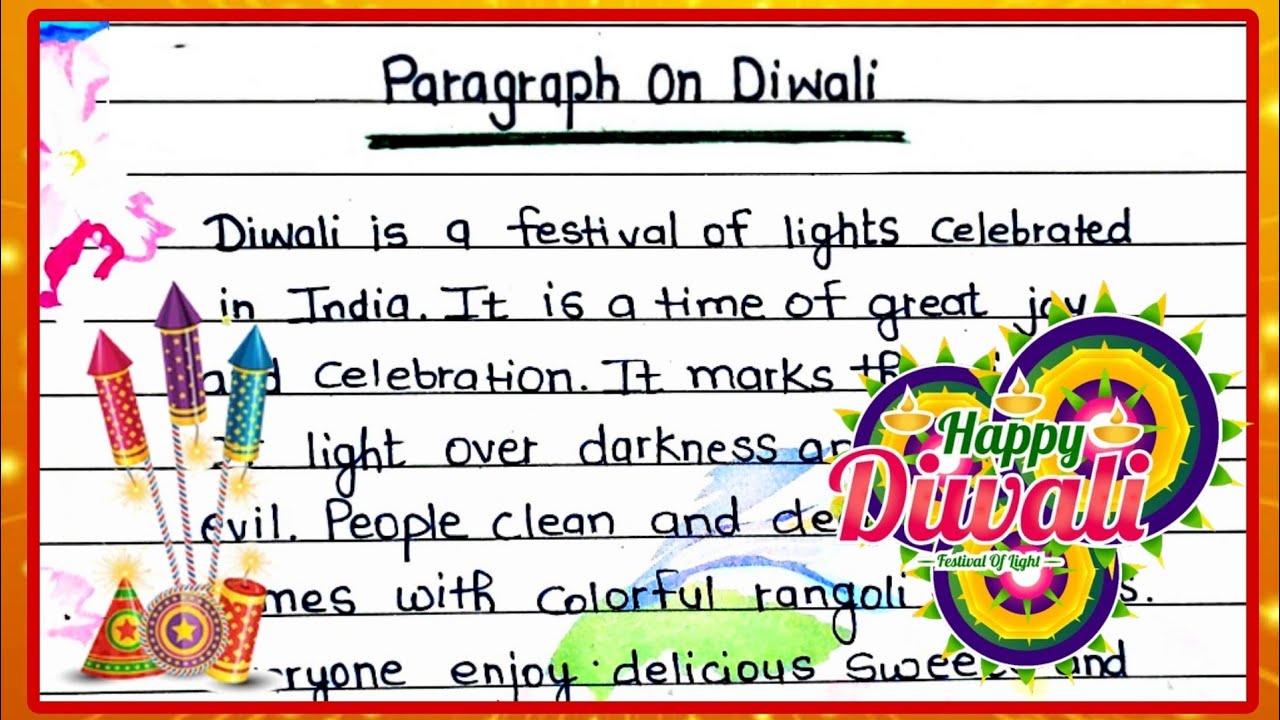 Paragraph on Diwali
Diwali is a festival of lights celebrated
in India. It is a time of great joy
and celebration. It marks
light over darkness
evil. People clean and
with colorful rangoli
enjoy delicious and
Happy
Diwali
Festival Of Light